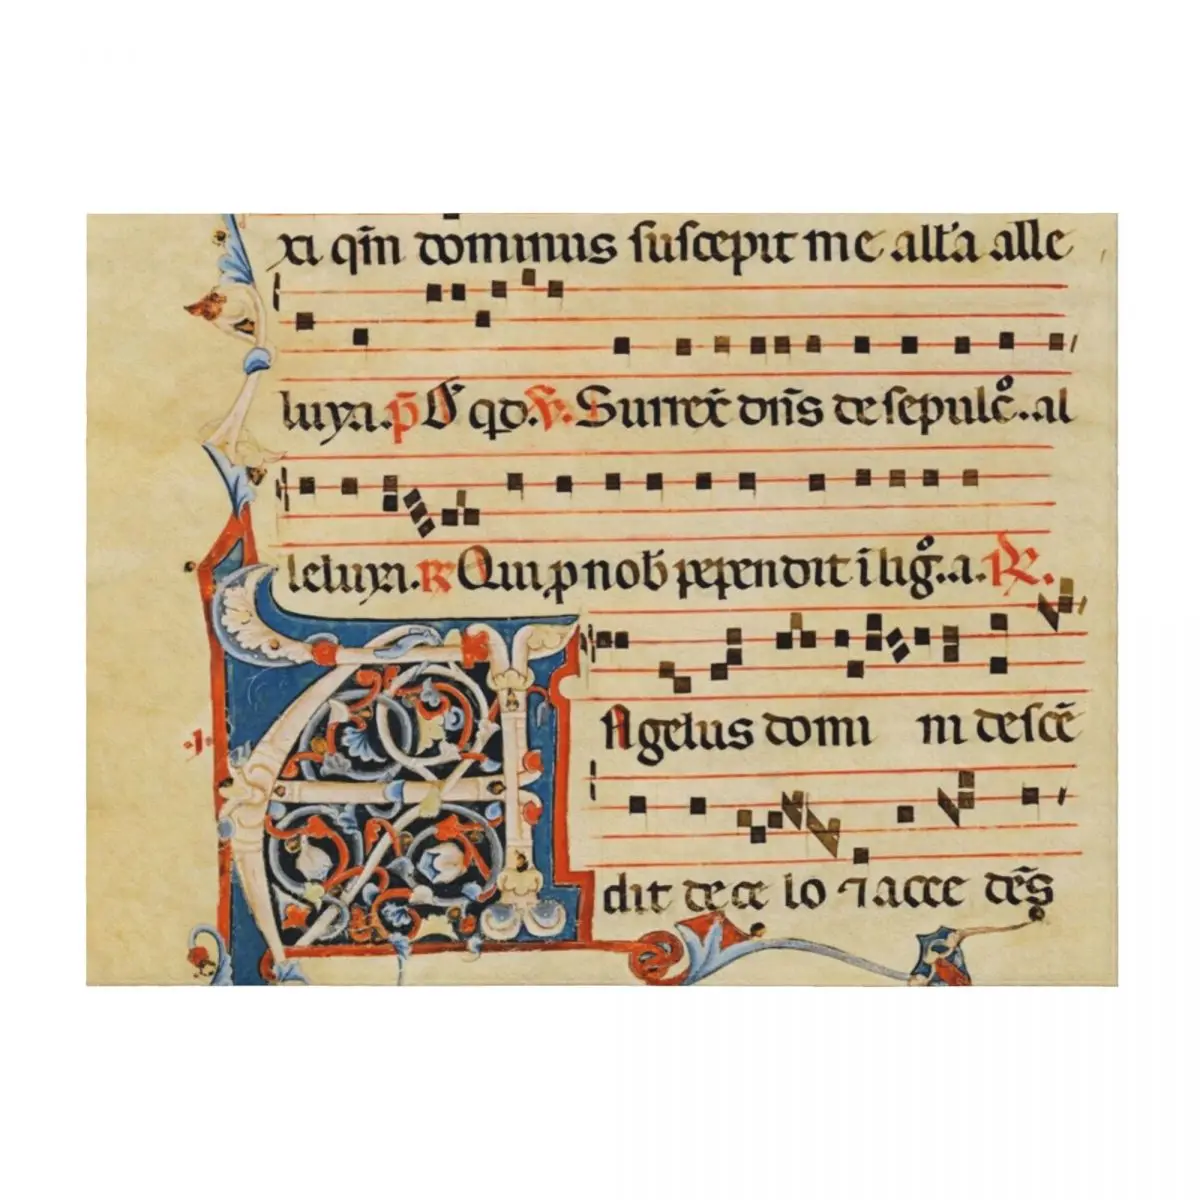 xi qm̄ dominus suscepit me all'a alle
luya. p̄ D' qd. V̄. Surrex̄ dn̄s de sepulc̄o..al
leluya. R Qui p nob̄ pependit ī ligo..a. R.
Angelus domi ni desce̅
dit de ce lo ⁊ acce de̅s
.1.